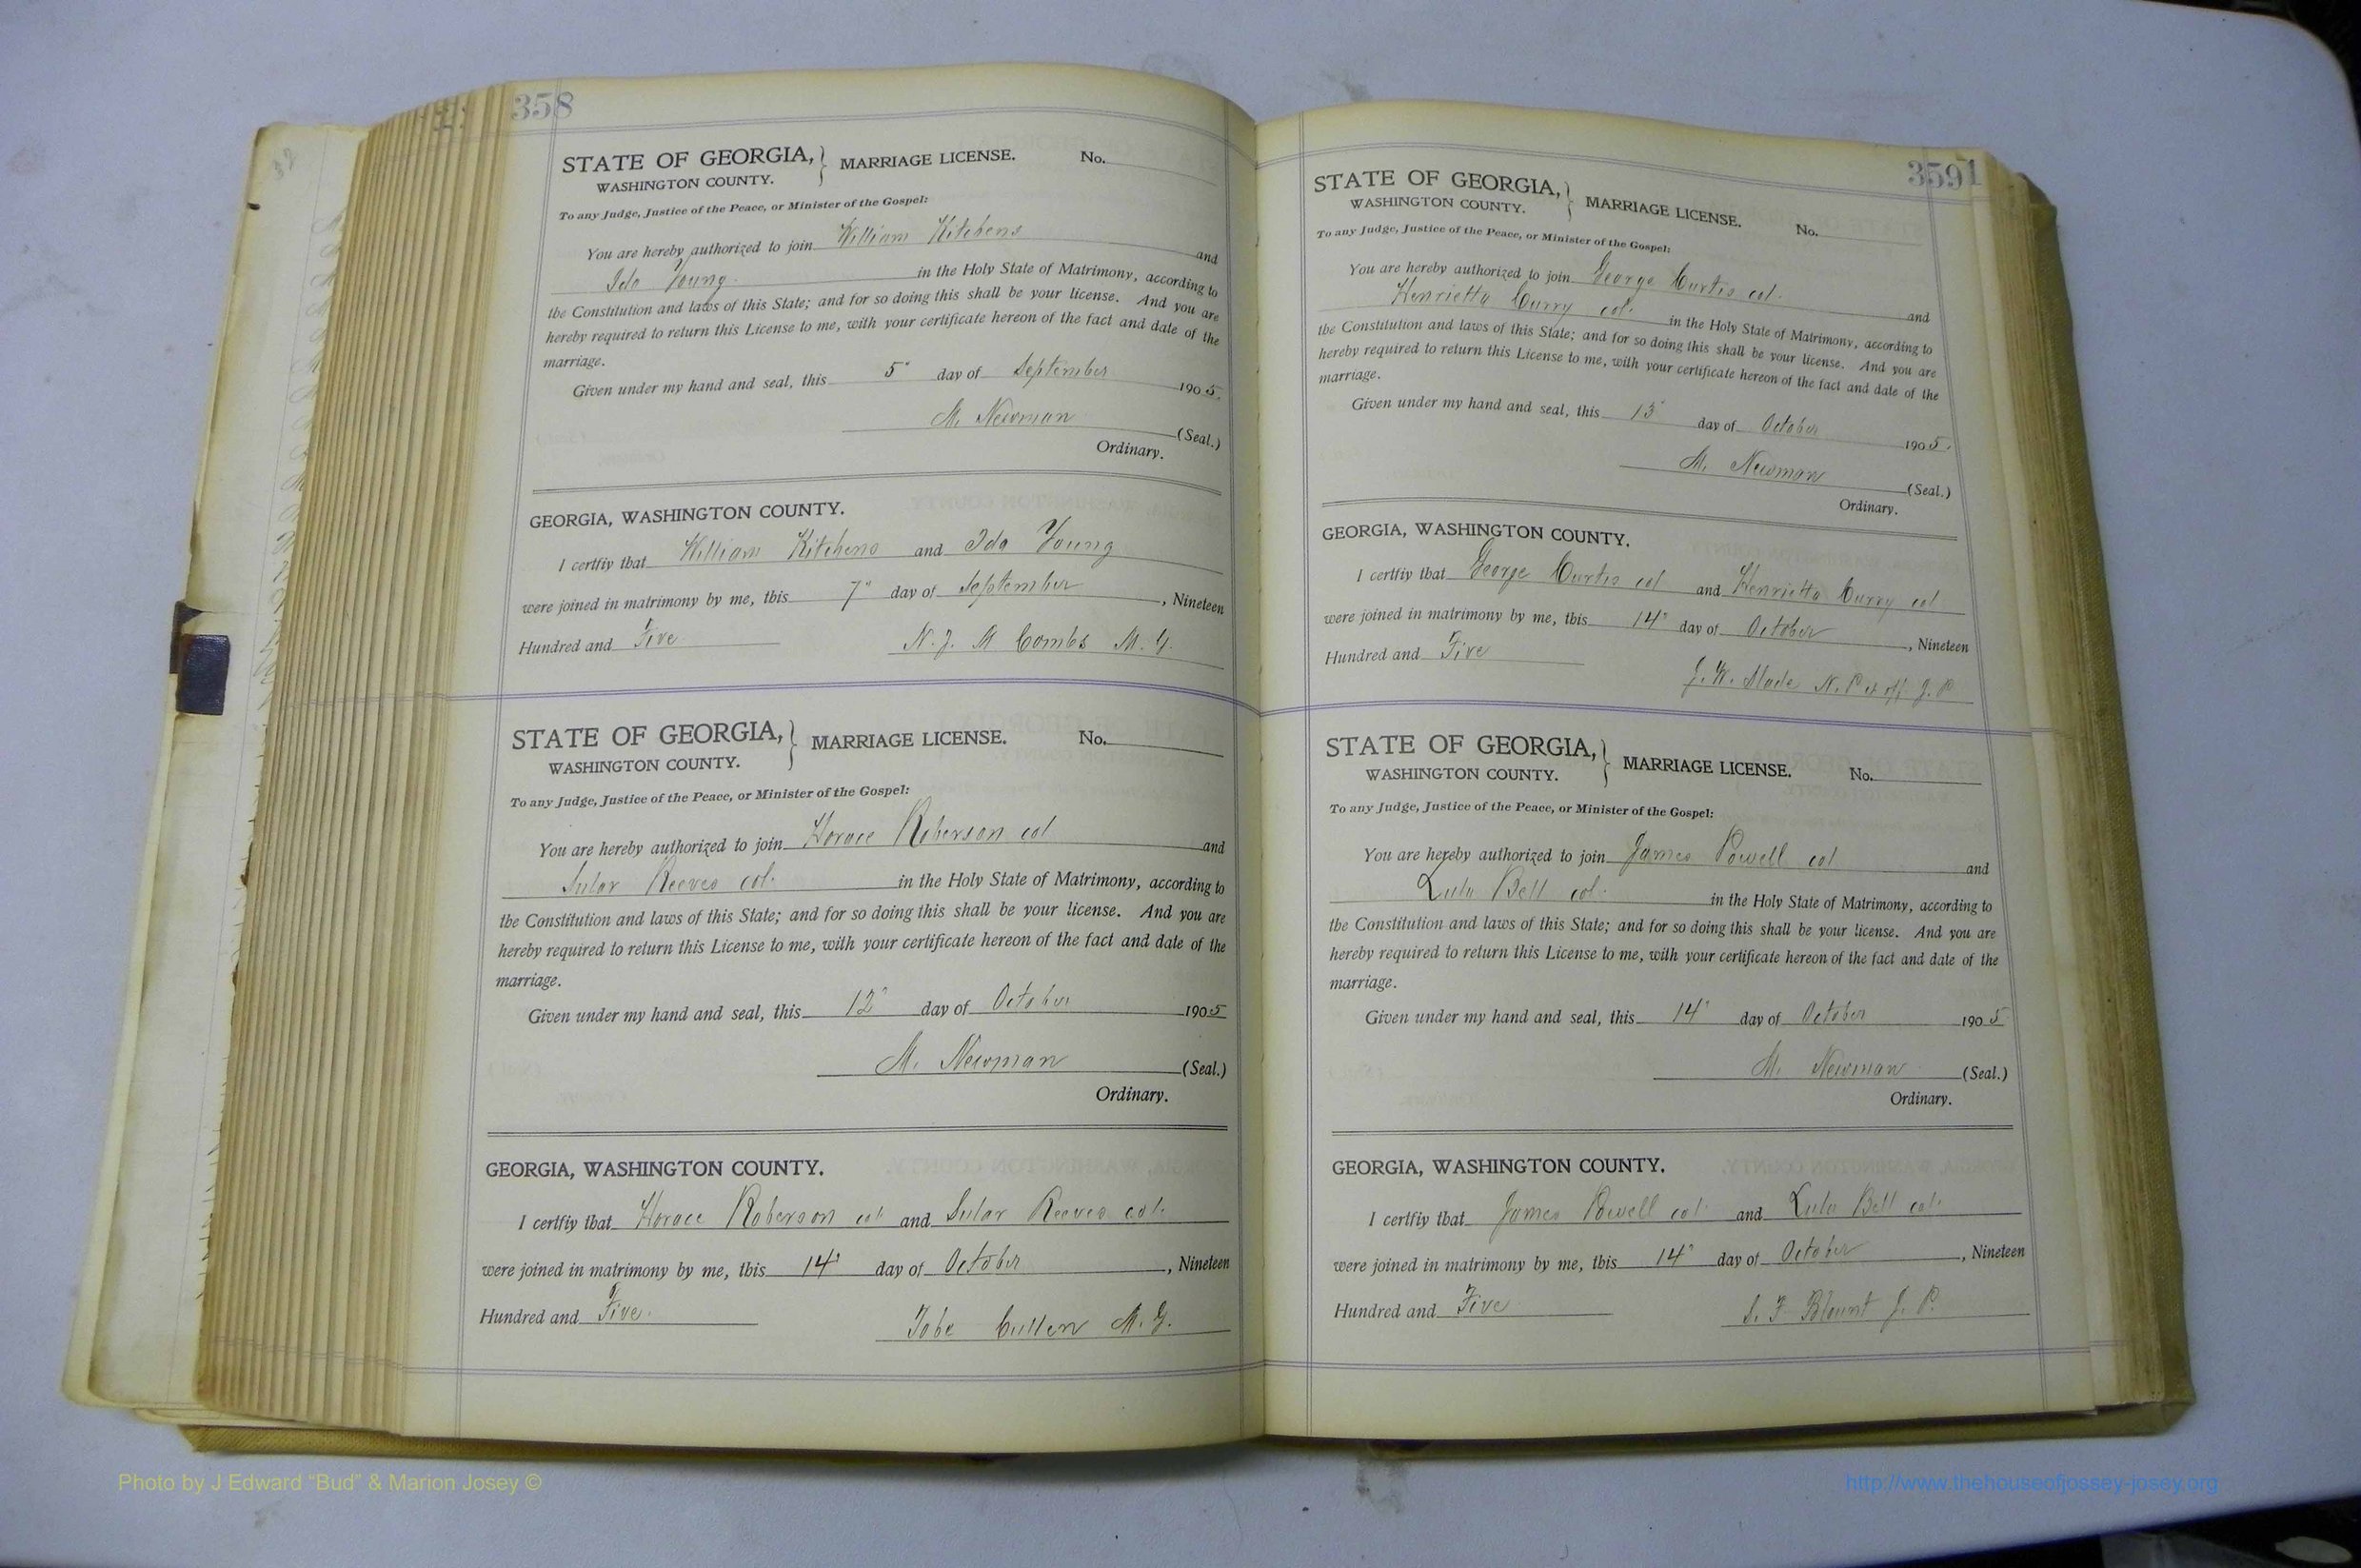 358
STATE OF GEORGIA, } MARRIAGE LICENSE. No.
WASHINGTON COUNTY.
To any Judge, Justice of the Peace, or Minister of the Gospel:
You are hereby authorized to join William Kitchens and
Ida Young in the Holy State of Matrimony, according to
the Constitution and laws of this State; and for so doing this shall be your license. And you are
hereby required to return this License to me, with your certificate hereon of the fact and date of the
marriage.
Given under my hand and seal, this 5" day of September 1905.
M. Newman (Seal.)
Ordinary.
GEORGIA, WASHINGTON COUNTY.
I certfiy that William Kitchens and Ida Young
were joined in matrimony by me, this 7" day of September, Nineteen
Hundred and Five N. J. M Combs M. G.
STATE OF GEORGIA, } MARRIAGE LICENSE. No.
WASHINGTON COUNTY.
To any Judge, Justice of the Peace, or Minister of the Gospel:
You are hereby authorized to join Horace Roberson col and
Sular Reeves col. in the Holy State of Matrimony, according to
the Constitution and laws of this State; and for so doing this shall be your license. And you are
hereby required to return this License to me, with your certificate hereon of the fact and date of the
marriage.
Given under my hand and seal, this 12" day of October 1905
M. Newman (Seal.)
Ordinary.
GEORGIA, WASHINGTON COUNTY.
I certfiy that Horace Roberson col and Sular Reeves col.
were joined in matrimony by me, this 14" day of October, Nineteen
Hundred and Five. Tobe Cullen M. G.
3591
STATE OF GEORGIA, } MARRIAGE LICENSE. No.
WASHINGTON COUNTY.
To any Judge, Justice of the Peace, or Minister of the Gospel:
You are hereby authorized to join George Curtis col. and
Henrietta Curry col. in the Holy State of Matrimony, according to
the Constitution and laws of this State; and for so doing this shall be your license. And you are
hereby required to return this License to me, with your certificate hereon of the fact and date of the
marriage.
Given under my hand and seal, this 13" day of October 1905.
M. Newman (Seal.)
Ordinary.
GEORGIA, WASHINGTON COUNTY.
I certfiy that George Curtis col and Henrietta Curry col
were joined in matrimony by me, this 14" day of October, Nineteen
Hundred and Five J. W. Slade N. P. J. P
STATE OF GEORGIA, } MARRIAGE LICENSE. No.
WASHINGTON COUNTY.
To any Judge, Justice of the Peace, or Minister of the Gospel:
You are hereby authorized to join James Powell col and
Lula Bell col. in the Holy State of Matrimony, according to
the Constitution and laws of this State; and for so doing this shall be your license. And you are
hereby required to return this License to me, with your certificate hereon of the fact and date of the
marriage.
Given under my hand and seal, this 14" day of October 1905
M. Newman (Seal.)
Ordinary.
GEORGIA, WASHINGTON COUNTY.
I certfiy that James Powell col. and Lula Bell col.
were joined in matrimony by me, this 14" day of October, Nineteen
Hundred and Five S. F Blount J. P.
Photo by J Edward “Bud” & Marion Josey ©
http://www.thehouseofjossey-josey.org